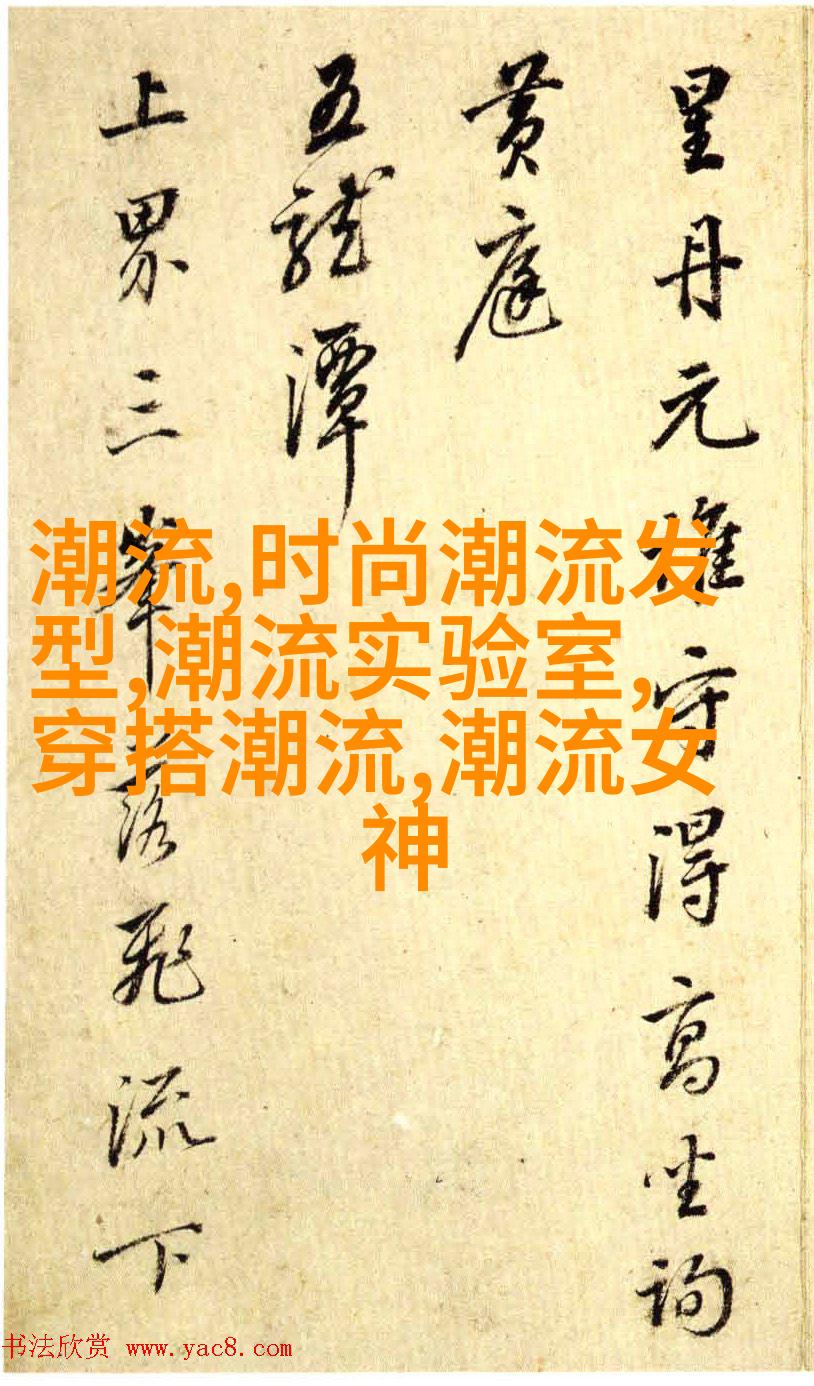 星丹元誰守得高坐詢
黄庭
五龍潭
上界三峯落飛流下
潮流,时尚潮流发
型,潮流实验室,
穿搭潮流,潮流女
神
书法欣赏 www.yac8.com